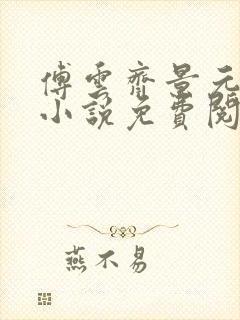 傅雲齊景元
小說免費閱
燕不易